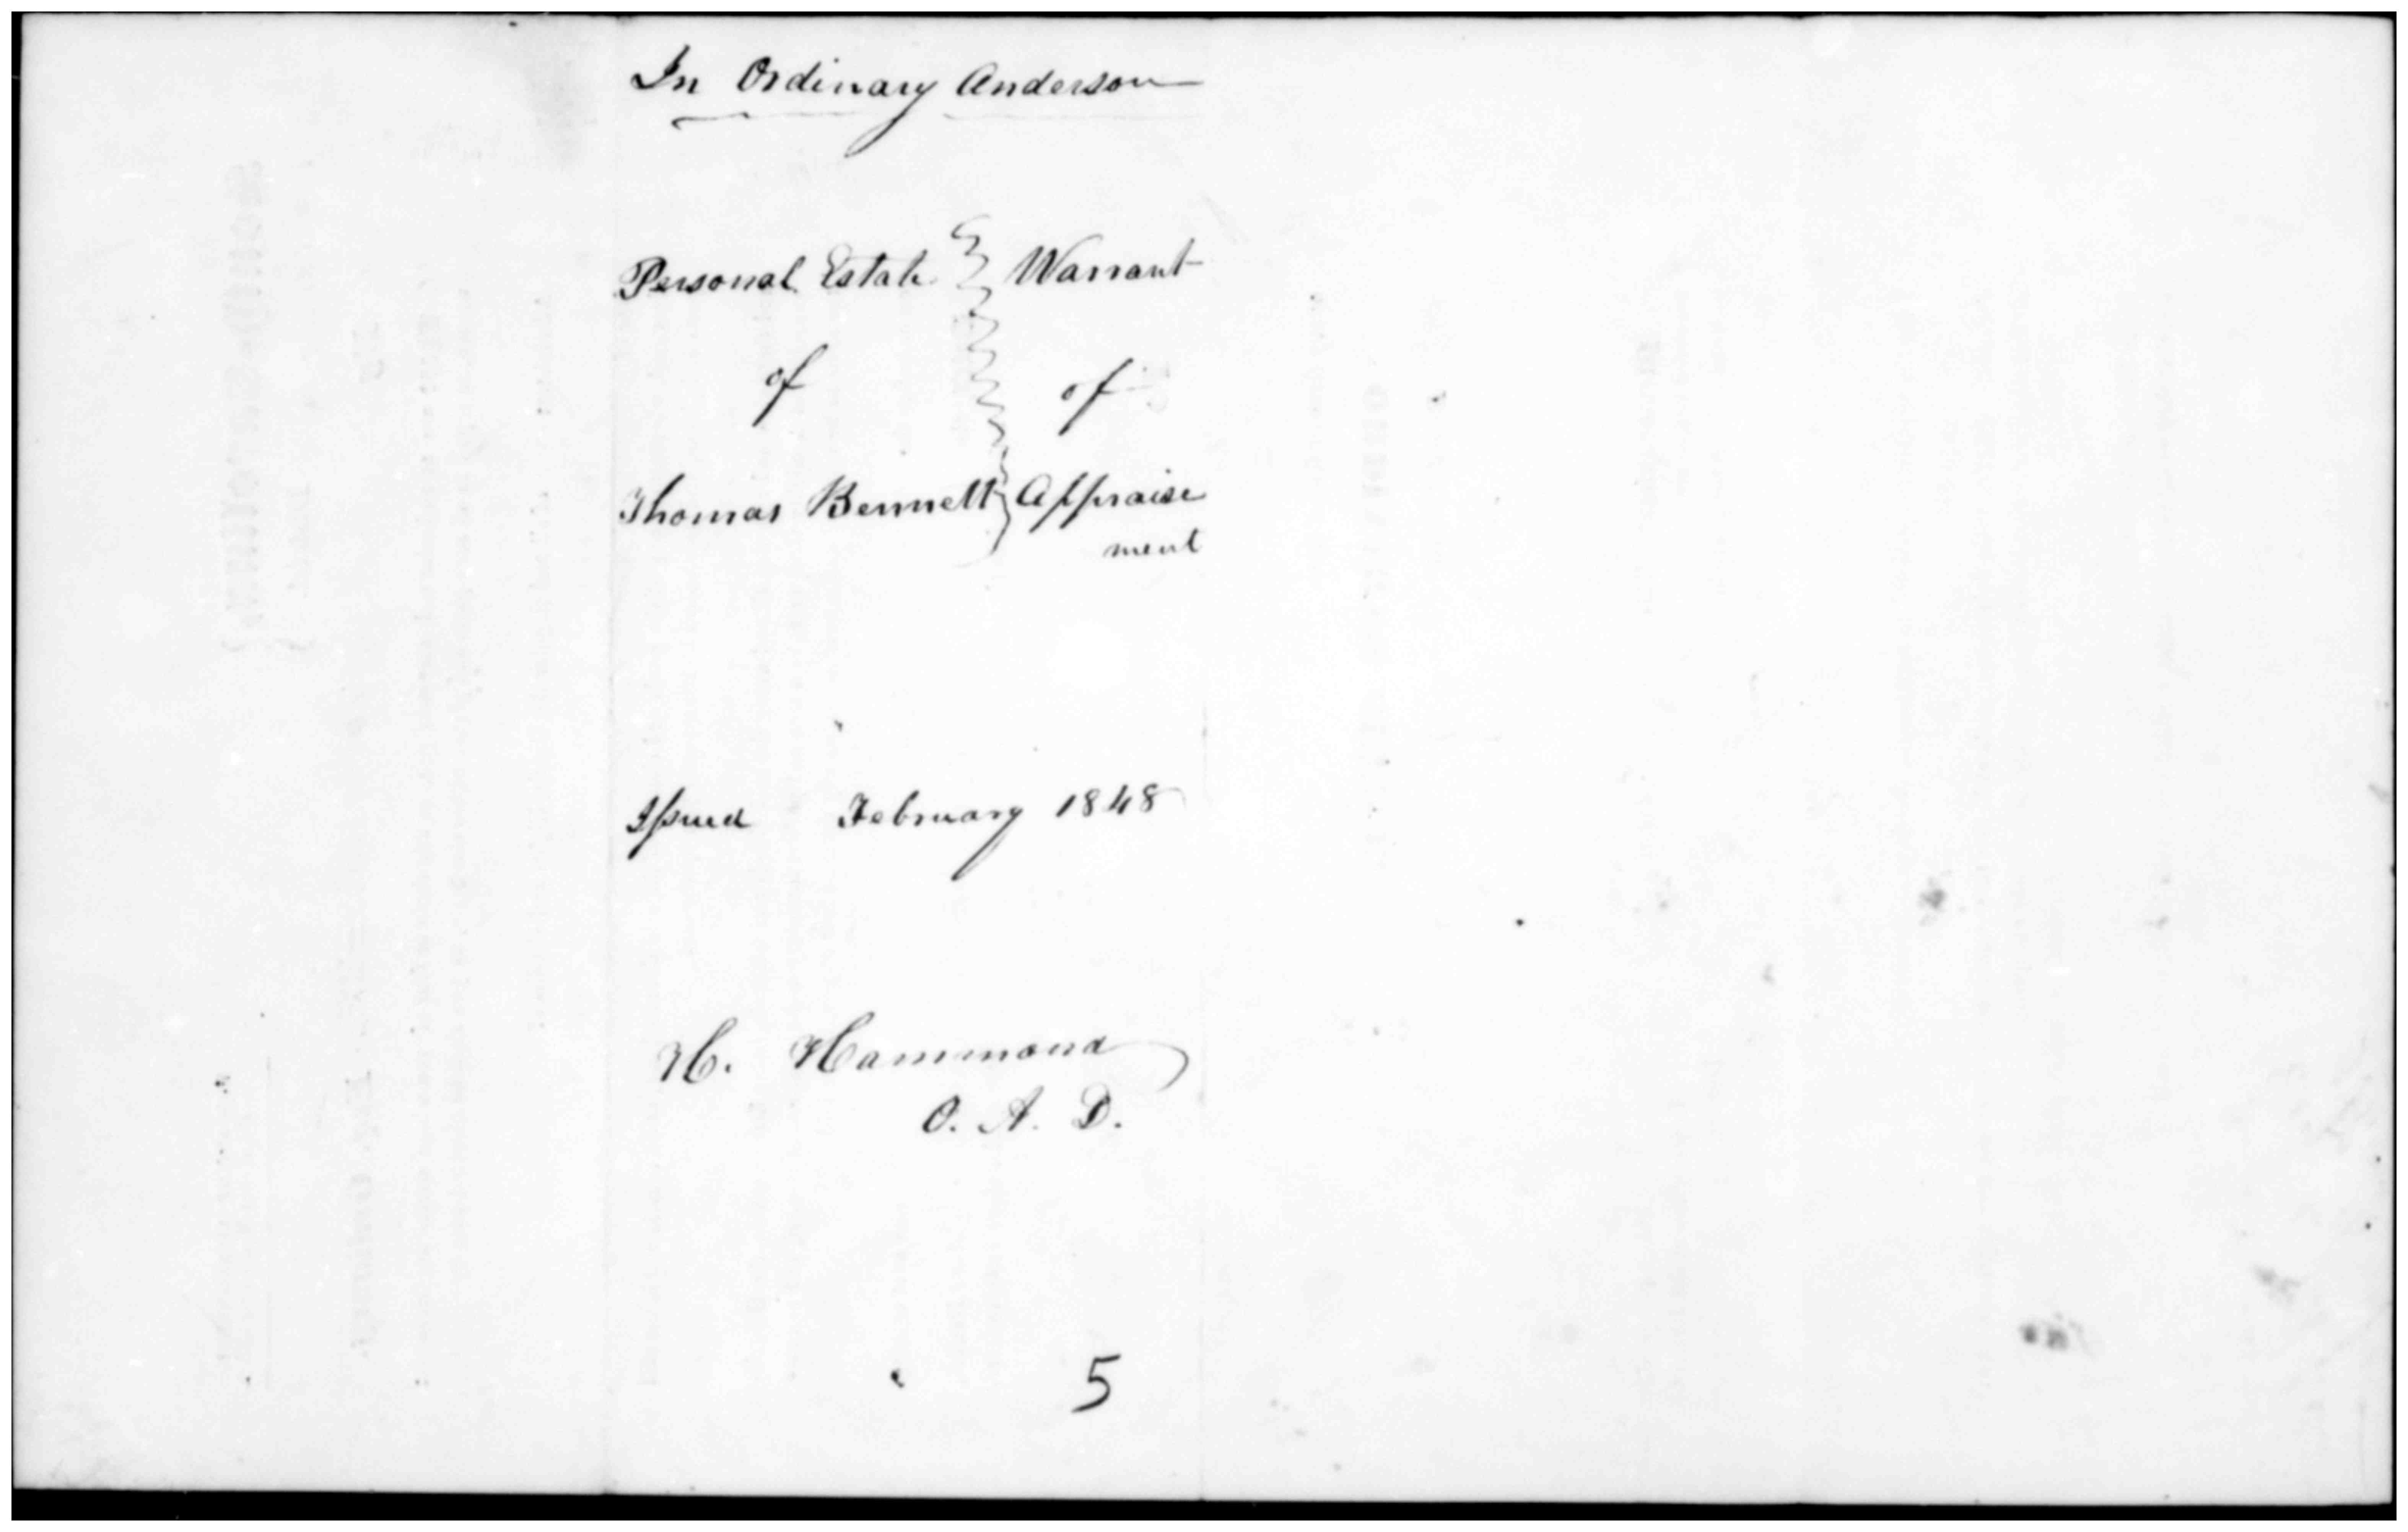 In Ordinary Anderson
Personal Estate } Warrant
of } of
Thomas Bennett } Appraise
ment
Issued February 1848
H. Hammond
O. A. D.
5